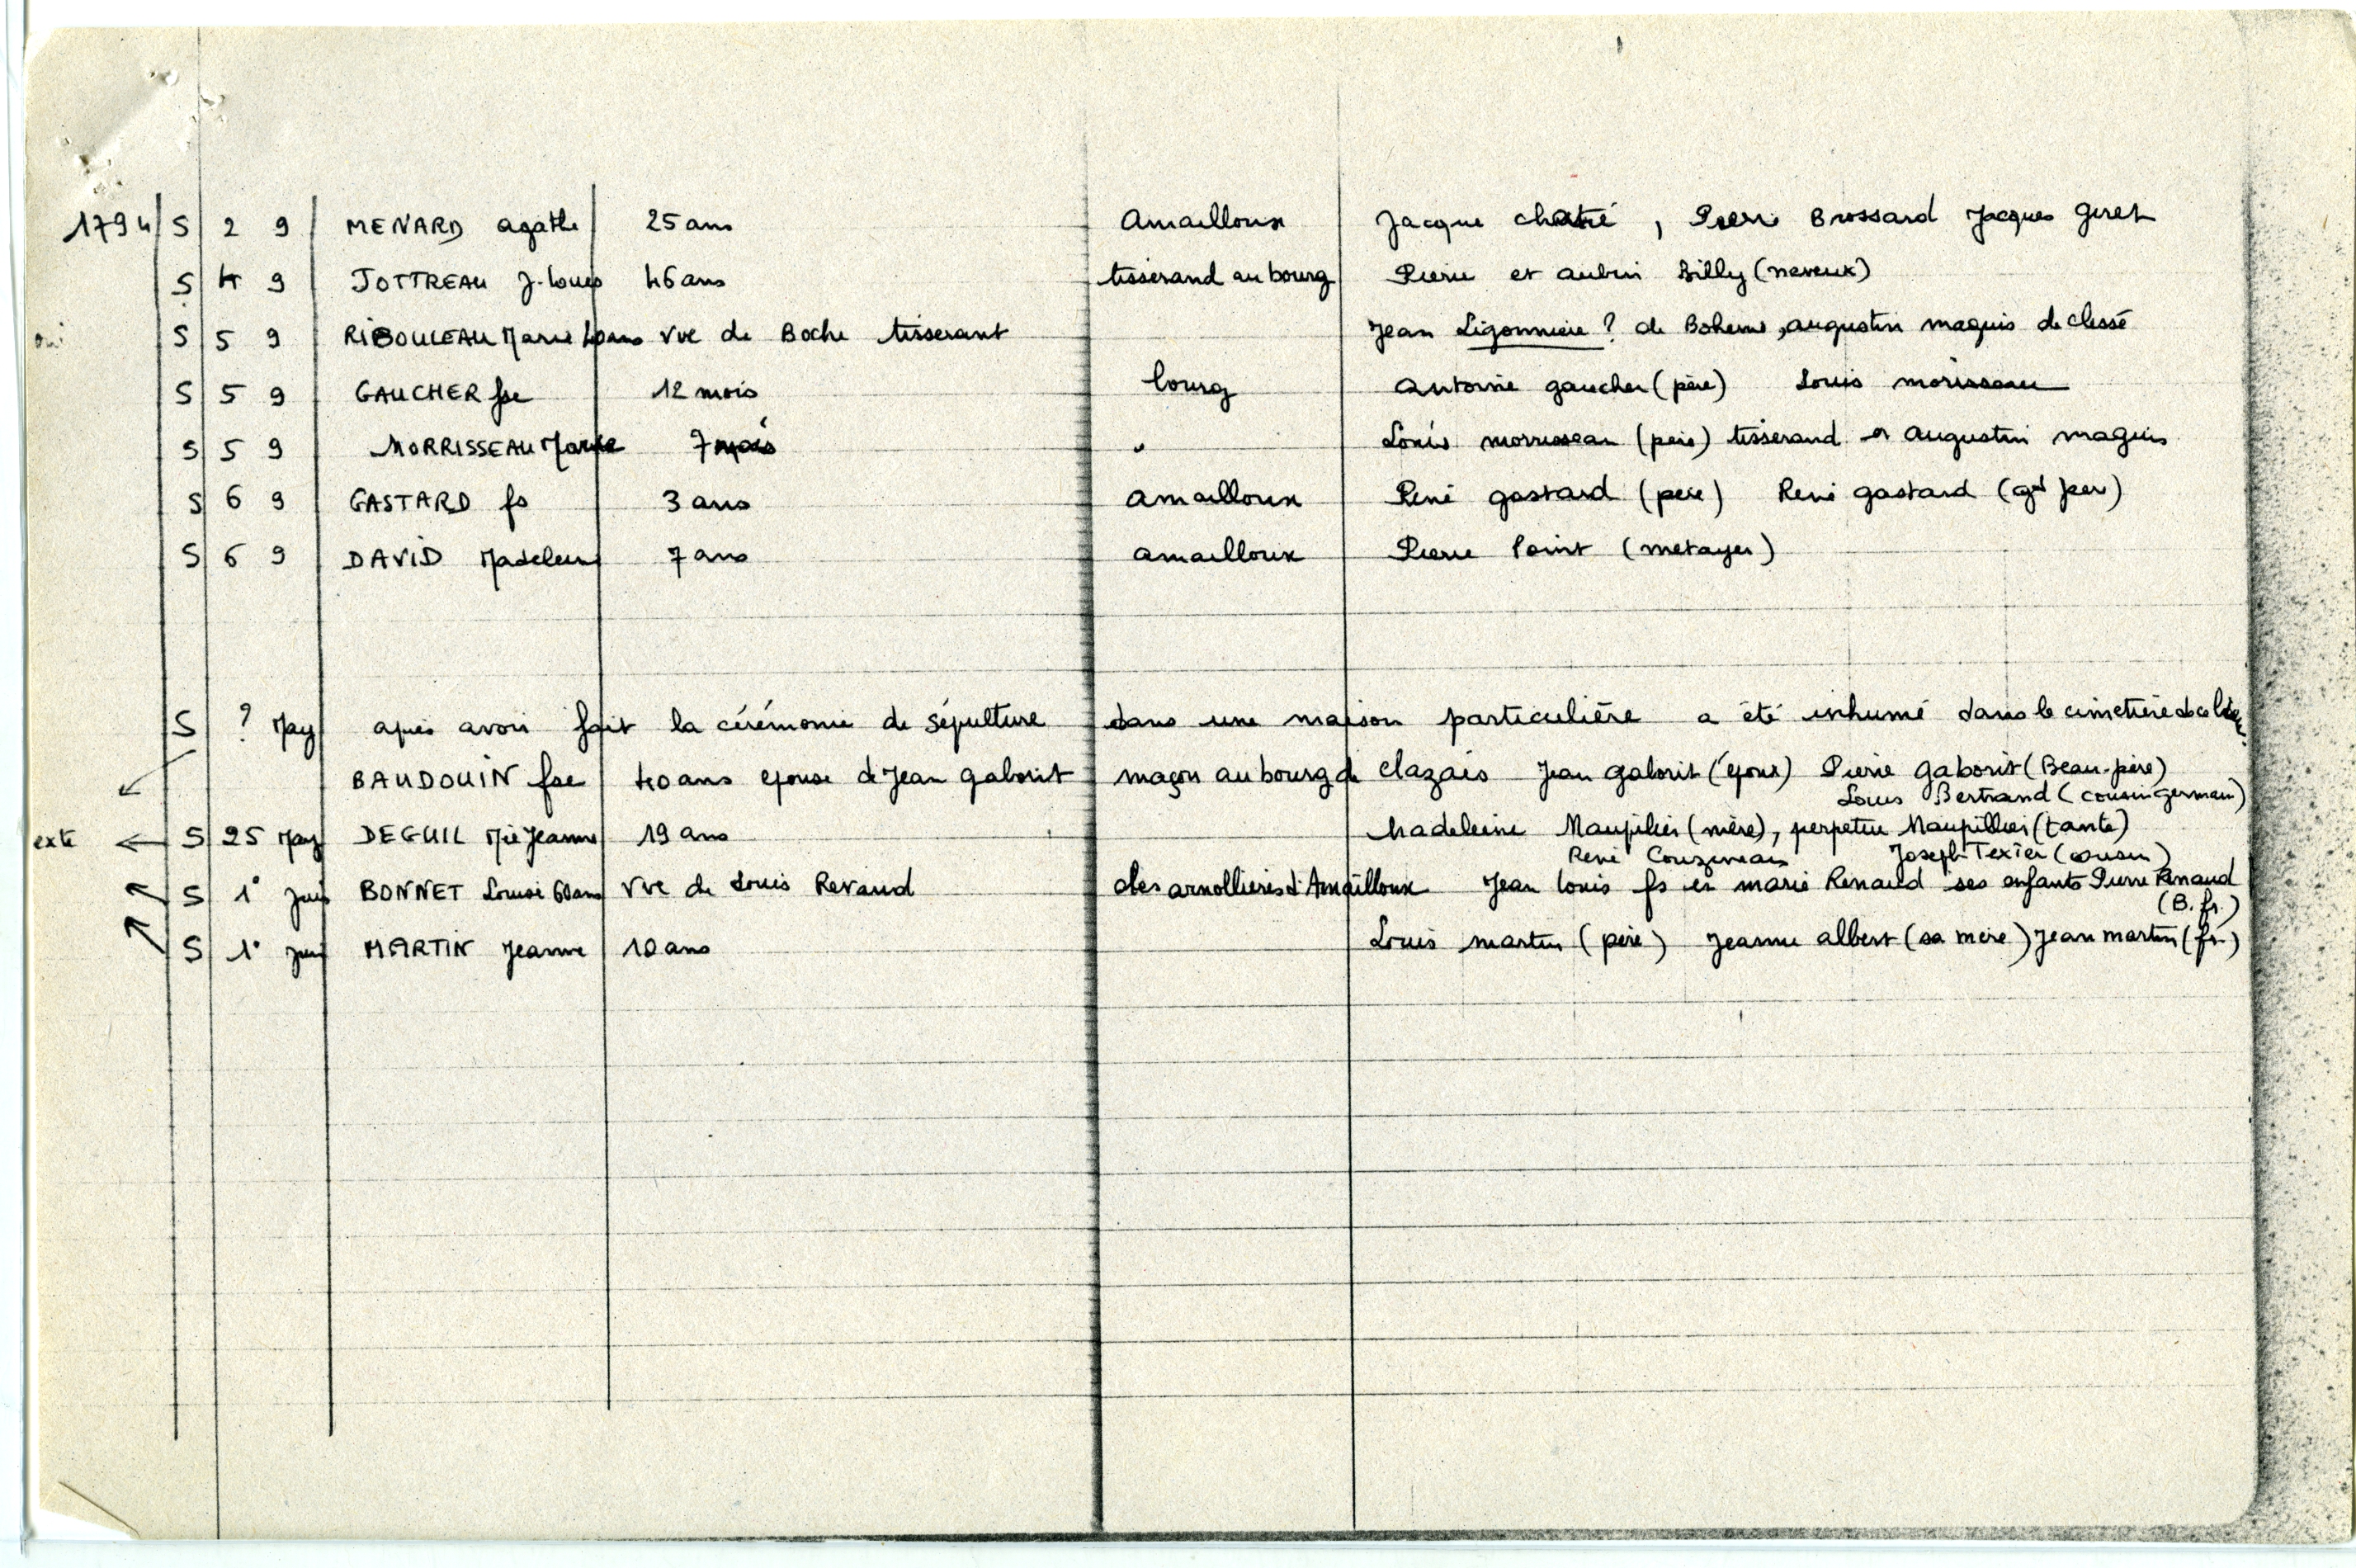 1794 S 2 9 MENARD agathe 25 ans Amailloux Jacque chatié, Pierre Brossard Jacques giret
S 4 9 JOTTREAU J. Louis 46 ans tisserand au bourg Pierre et aubin Billy (neveux)
oui S 5 9 RIBOULEAU Marie 40 ans vve de Boche tisserant Jean Ligonniere ? de Boheme, augustin maquis de clessé
S 5 9 GAUCHER fse 12 mois bourg antoine gaucher (père) Louis morisseau
S 5 9 MORRISSEAU Marie 7 mois " Louis morrisseau (père) tisserand et augustin maquis
S 6 9 GASTARD fs 3 ans amailloux René gastard (père) René gastard (gd père)
S 6 9 DAVID Madeleine 7 ans amailloux Pierre Point (métayer)
S ? May après avoir fait la cérémonie de sépulture dans une maison particulière a été inhumé dans le cimetière de ce lieu
BAUDOUIN fse 40 ans epouse de Jean gaborit maçon au bourg de clazais Jean gaborit (époux) Pierre gaborit (Beau-père)
Louis Bertrand (cousin germain)
exte S 25 May DEGUIL Mie Jeanne 19 ans Madeleine Maupilier (mère), perpetue Maupillier (tante)
René Couzineau Joseph Texier (cousin)
S 1° juin BONNET Louise 60 ans vve de Louis Renaud des arnollieres d'Amailloux Jean louis fs et marie Renaud ses enfants Pierre Renaud
(B. fr.)
S 1° juin MARTIN Jeanne 10 ans Louis martin (père) Jeanne albert (sa mère) Jean martin (fr.)